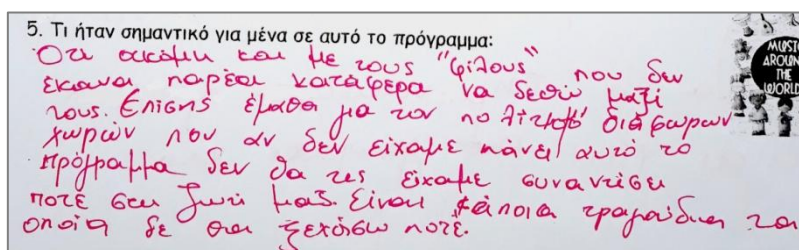 5. Τι ήταν σημαντικό για μένα σε αυτό το πρόγραμμα:
Οτι ακόμη και με τους "φίλους" που δεν
έκανα παρέα κατάφερα να δεθώ μαζί
τους. Επίσης έμαθα για τον πολιτισμό διαφωρων
χωρών που αν δεν είχαμε κάνει αυτό το
πρόγραμμα δεν θα τις είχαμε συναντίσει
ποτέ στη ζωή μας. Είναι κάποια τραγούδια τα
οποία δε θα ξεχάσω ποτέ.
MUSIC
AROUND
THE
WORLD